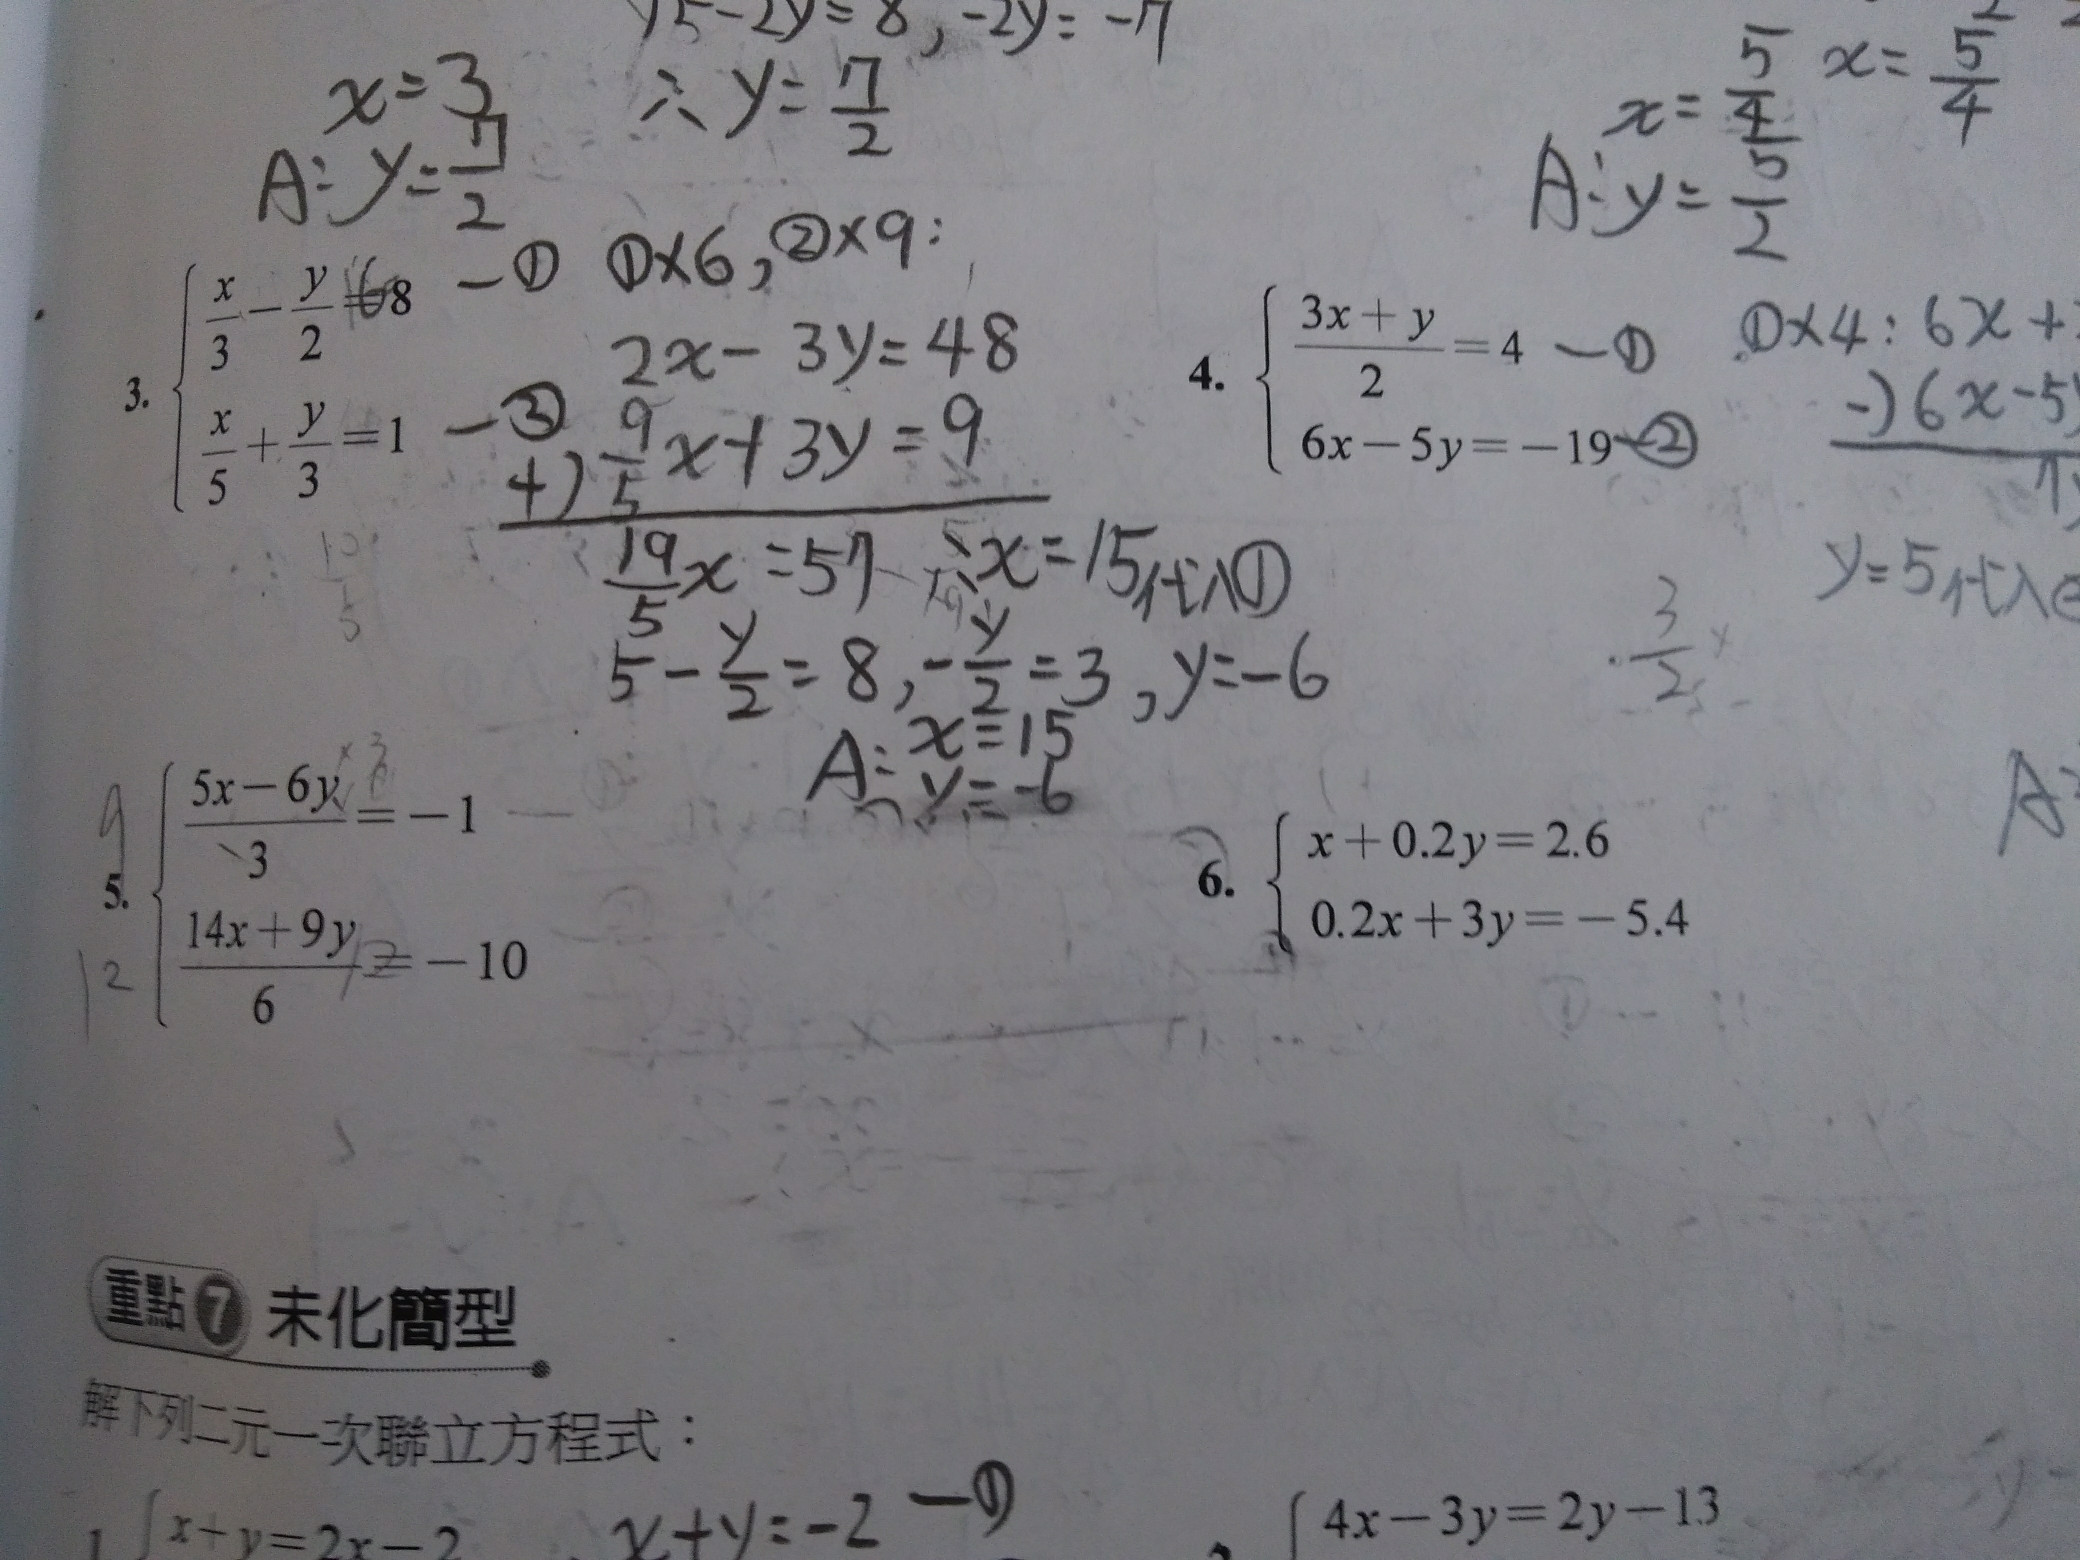 y5-2y=8, -2y=-7
x=3 ∴ y=7/2
A: y=7/2
x=5/4
x=5/4
A: y=5/2
3. { x/3 - y/2 = 8 -① ①×6, ②×9:
2x-3y=48
x/5 + y/3 = 1 -②
+) 9/5 x+3y=9
19/5 x=57 ∴x=15,代入①
5-y/2=8, -y/2=3, y=-6
A: x=15
y=-6
4. { (3x+y)/2 = 4 -① ①×4: 6x+
6x-5y=-19 -②
-) 6x-5y
y=5,代入
3/2
A:
9
5. { (5x-6y)/3 = -1
12
(14x+9y)/6 = -10
6. { x+0.2y=2.6
0.2x+3y=-5.4
重點 7 未化簡型
解下列二元一次聯立方程式：
1. { x+y=2x-2 x+y=-2 -①
{ 4x-3y=2y-13